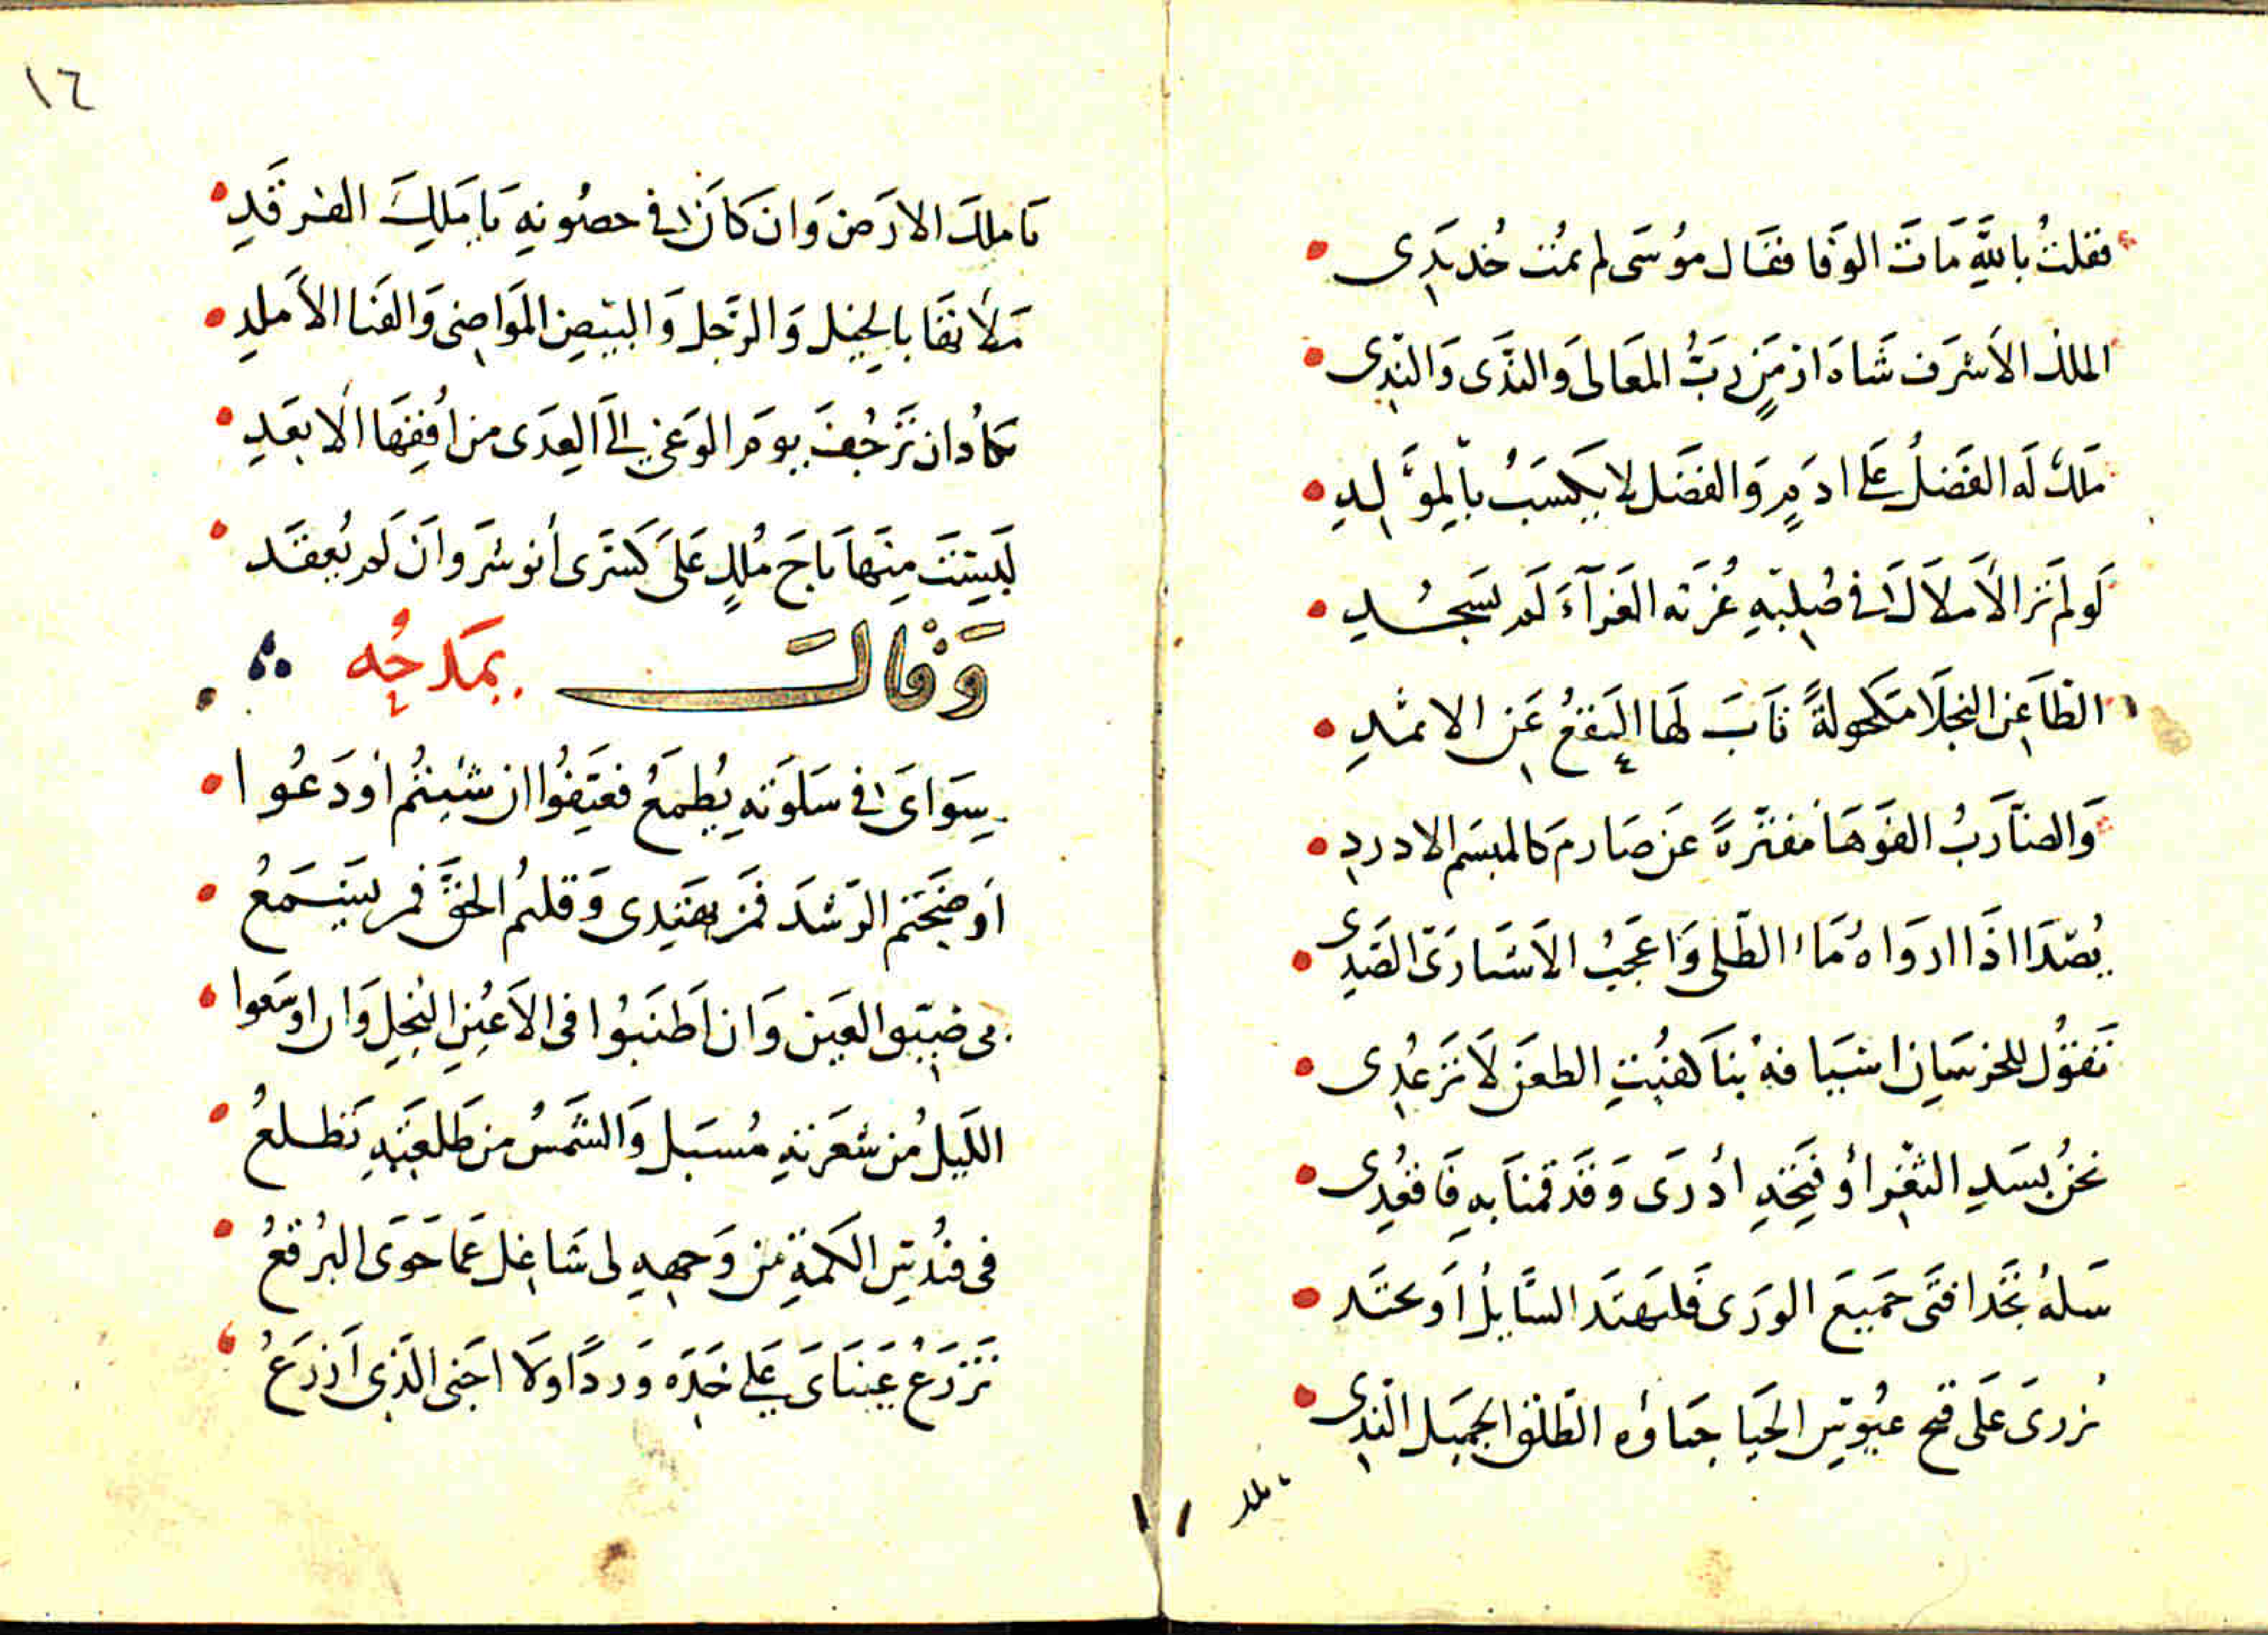 فقلتُ باللهِ مَاتَ الوَفا فقَال مُوسَى لم يمُت خُد بيَدِى
الملك الأشرَف شَاه ارمَنٍ رَبُّ المعَالى وَالندَى وَالنّدِى
مَلكٌ لَه الفَضلُ عَلى ادَمٍ وَالفضَل لا يكسَبُ بالموَّلدِ
لَو لم تَر الأَملاَك فى صُلبهِ غُرَته الغَرآءَ لَم تسَجُدِ
الطَاعِن النجلَا مَكحولةً نَابَ لَها النَقعُ عَن الاثمدِ
وَالضاَرَبُ الفَوهَا مفترةً عَن صَارم كالمبسَم الادردِ
يُصَدا اذَا ارواهُ مَاء الطُلى وَاعجَبُ الاشيَا رَىّ الصَدِى
تَقوُل للخرسَان اسيَافهُ بنَا لهنُتِ الطعَن لاَ تَرعُدِى
نحنُ بسَدِ الثغر أو فتحِهِ أدرَى وَقدَ قمنَا بهِ فَاقعُدِى
سَلهُ تجَدا فتَى جَميعَ الورَى فَليَهَتد السَّايلُ اَو يجتَد
يُزرِى عَلى قبح عبُوسِ الحَيا حبَاؤه الطَلق الجميَل النّدِى
ملك
١٦
مَا ملك الارَض وَان كَانَ فى حصُونهِ يَا مَلِكَ الفرقَدِ
مَلأتهَا بالخيل وَالرّجل وَالبيضِ المَواضِى وَالقَنا الأملدِ
تكَادُ ان تَرجُفَ يومَ الوَغى الَى العِدَى من اُفقِهَا الابعَدِ
لَبِستَ مِنهَا تَاجَ مُلكٍ عَلَى كَسَرى أنوشَروانَ لَم يُعقَد
وَقَالَ يمَدحُه
سِوَاىَ فى سَلوَتهِ يُطمَعُ فعَنِفُوا ان شئِتُم أودَعُوا
اَوضَحتم الرّشدَ فمَن يهَتدِى وَقلتُم الحَقَّ فمن يسَمَعُ
بى ضيّق العَين وَان اَطنَبوُا فى الاَعيُنِ النُجلِ وَان اوسَعوا
اللَيلُ مُن شعَرتهِ مُسبَل وَالشَّمسُ من طَلعَتهِ تَطلعُ
فى فندُسِ الكَمةِ من وَجههِ لى شَاغِل عَما حَوَى البُرقعُ
تَزرَعُ عَينَاىَ عَلى خَدِّه وَردًا ولَا اجَنى الذِى اَزرَعُ